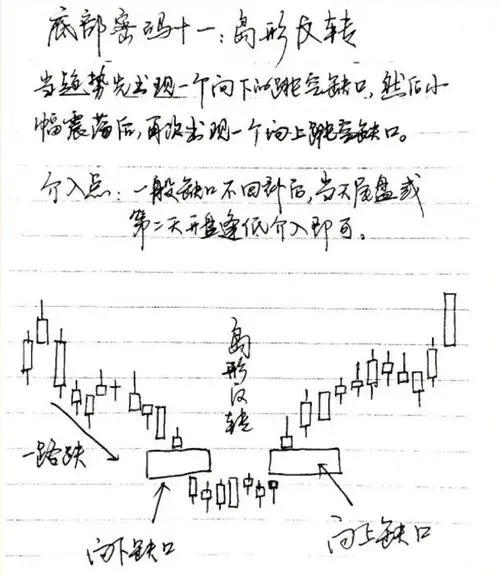 底部密码十一：岛形反转
当趋势先出现一个向下的跳空缺口，然后小
幅震荡后，再次出现一个向上跳空缺口。
介入点：一般缺口不回补后，当天尾盘或
第二天开盘逢低介入即可。
岛形反转
一路跌
向下缺口
向上缺口